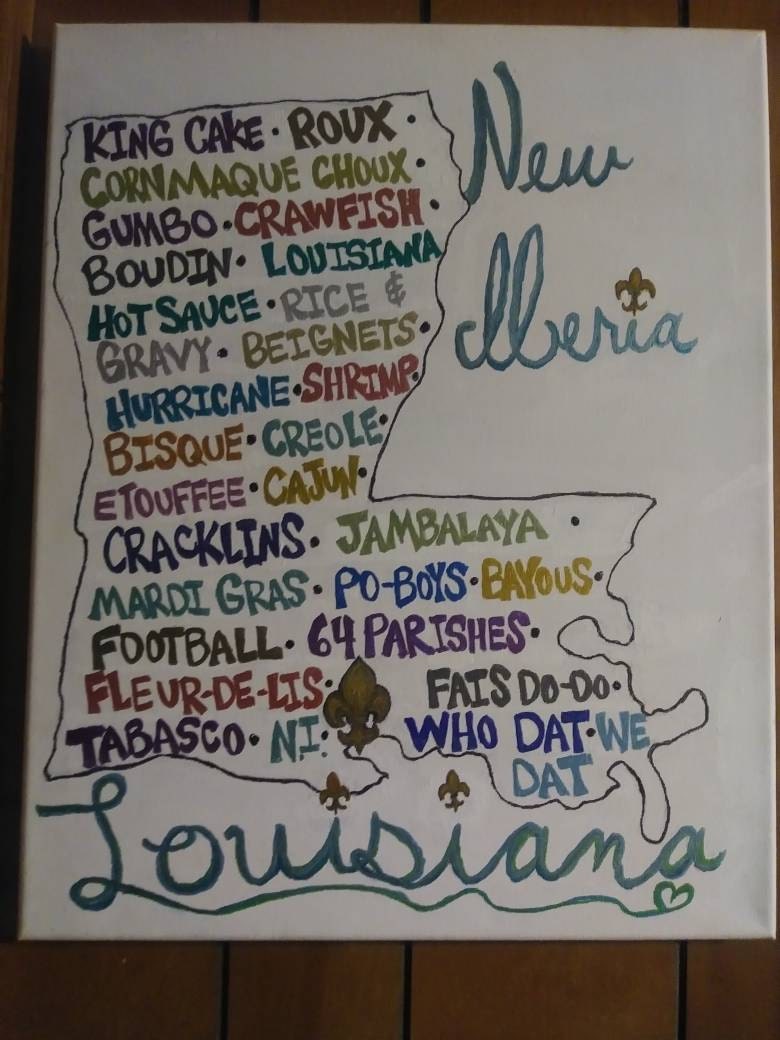 KING CAKE · ROUX ·
CORNMAQUE CHOUX ·
GUMBO · CRAWFISH ·
BOUDIN · LOUISIANA
HOT SAUCE · RICE &
GRAVY · BEIGNETS ·
HURRICANE · SHRIMP ·
BISQUE · CREOLE ·
ETOUFFEE · CAJUN ·
CRACKLINS · JAMBALAYA ·
MARDI GRAS · PO-BOYS · BAYOUS ·
FOOTBALL · 64 PARISHES ·
FLEUR-DE-LIS · FAIS DO-DO ·
TABASCO · N.I. · WHO DAT · WE
DAT
New
Iberia
Louisiana